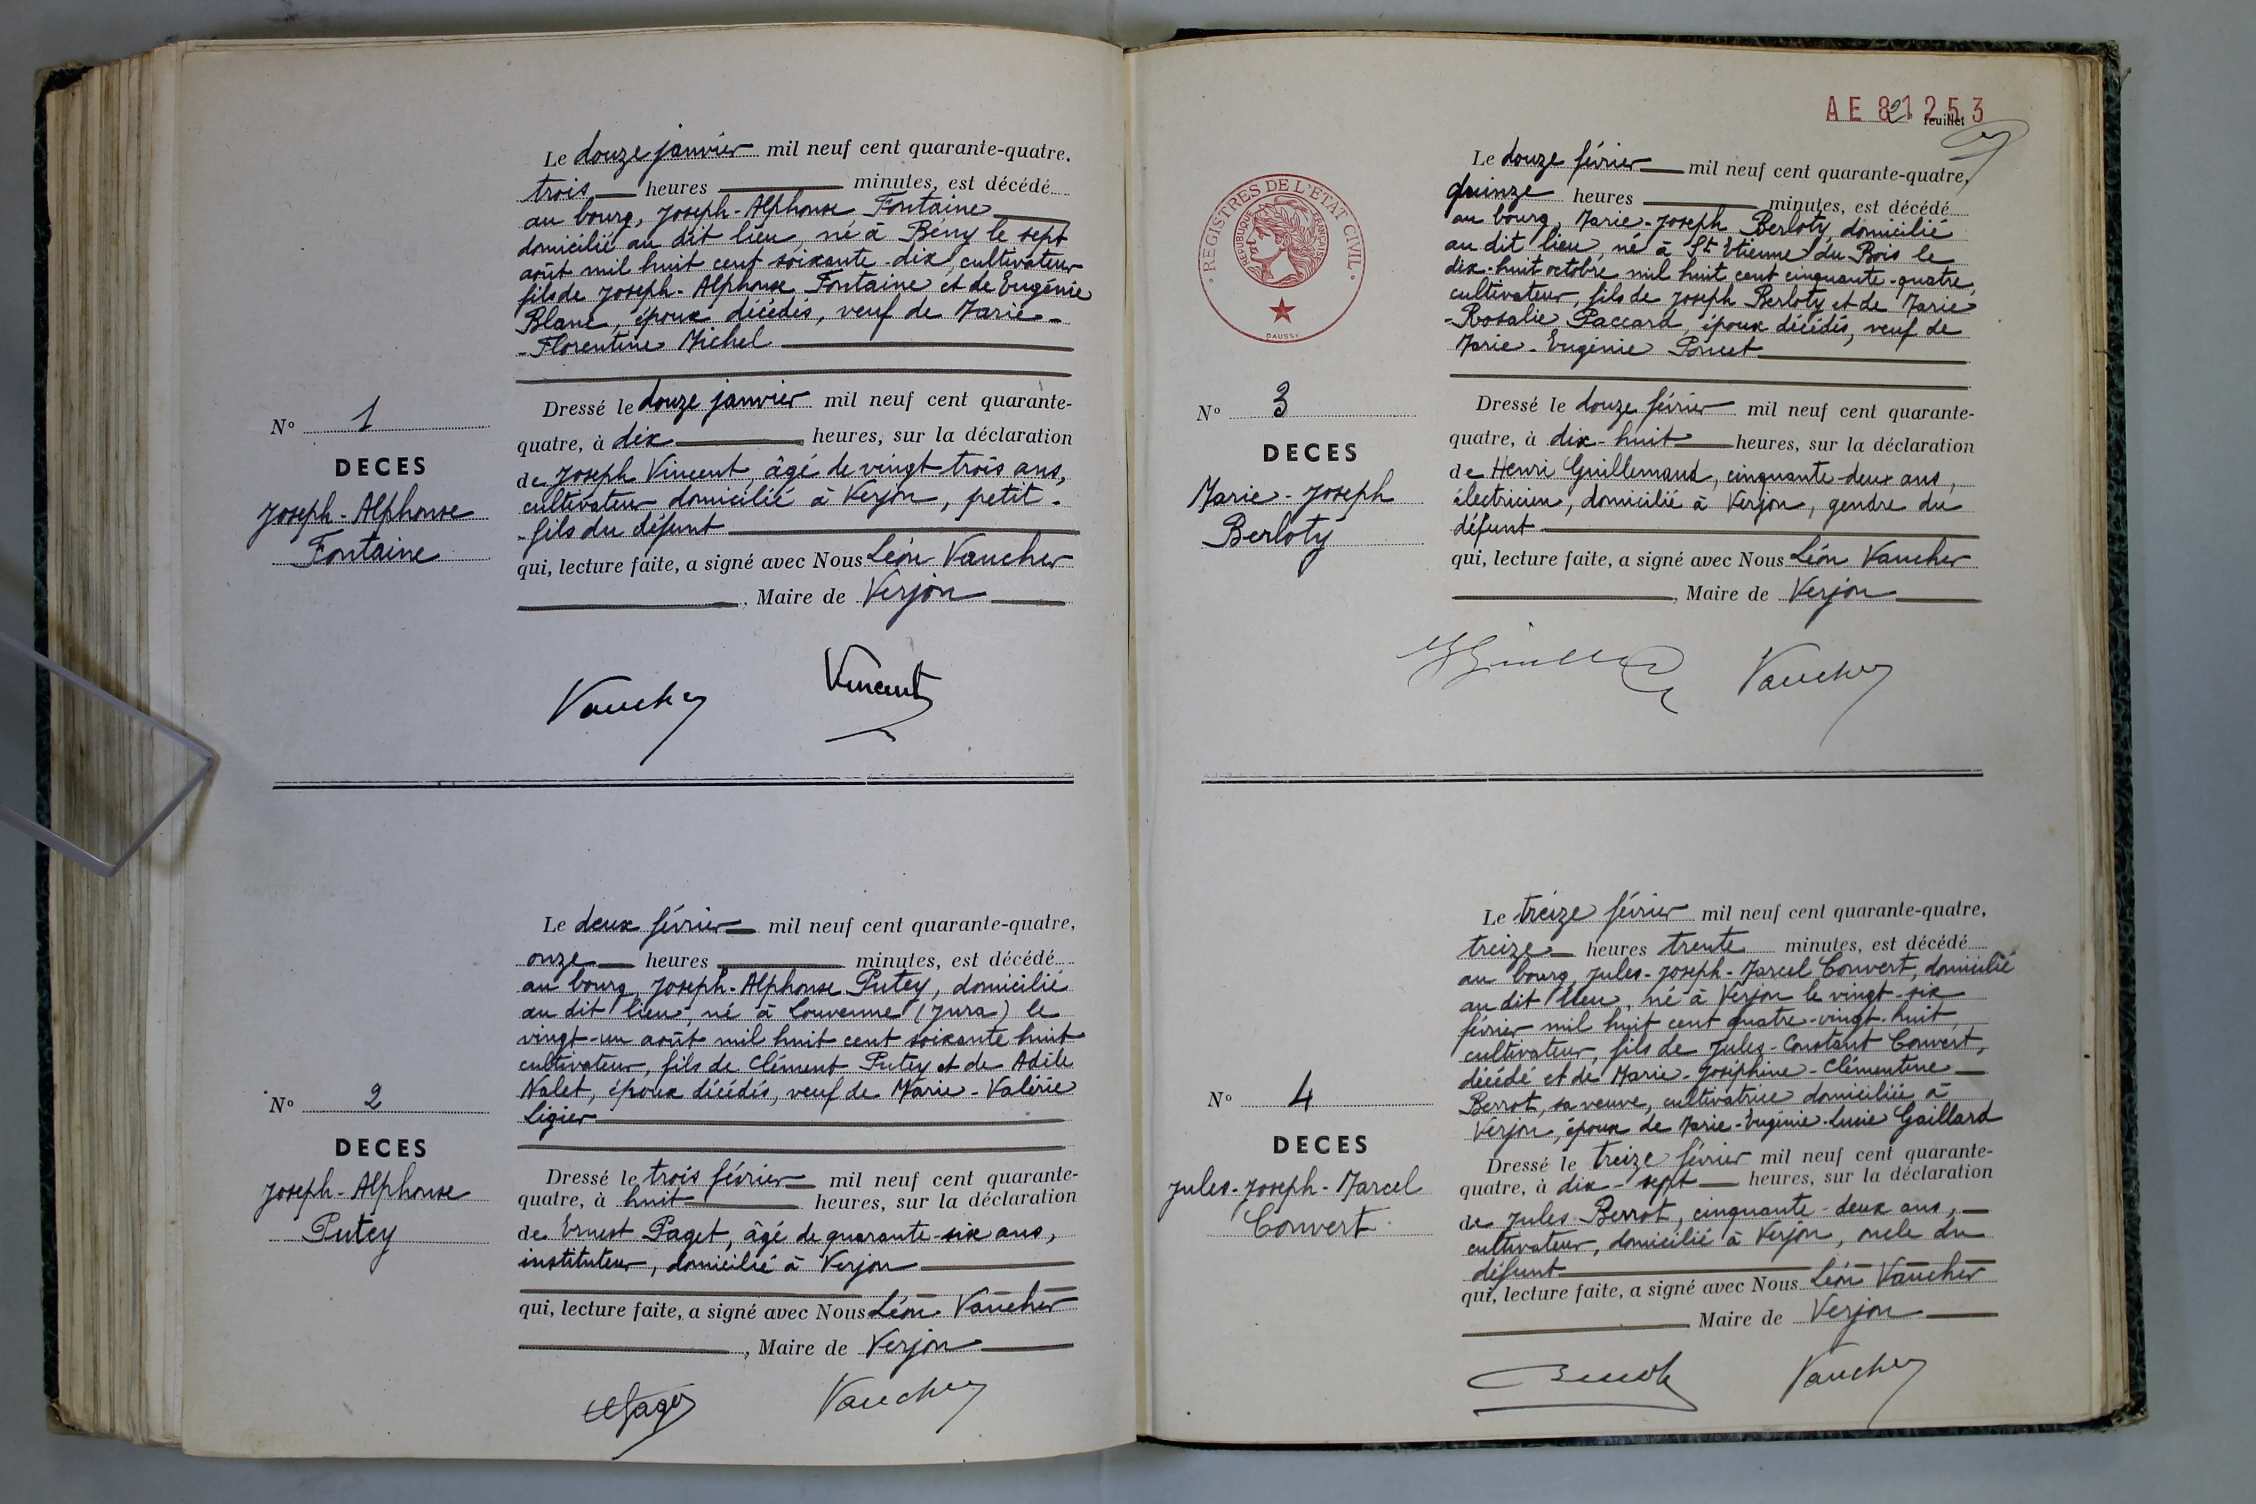 Le douze janvier mil neuf cent quarante-quatre.
trois heures minutes, est décédé
au bourg, Joseph-Alphonse Fontaine
domicilié au dit lieu, né à Bény le sept
août mil huit cent soixante-dix, cultivateur
fils de Joseph-Alphonse Fontaine et de Eugénie
Blanc, époux décédés, veuf de Marie-
-Florentine Michel
Nº 1
DECES
Joseph-Alphonse
Fontaine
Dressé le douze janvier mil neuf cent quarante-
quatre, à dix heures, sur la déclaration
de Joseph Vincent, âgé de vingt-trois ans,
cultivateur domicilié à Verjon, petit-
-fils du défunt
qui, lecture faite, a signé avec Nous Léon Vaucher
, Maire de Verjon
Vaucher Vincent
Le deux février mil neuf cent quarante-quatre,
onze heures minutes, est décédé
au bourg, Joseph-Alphonse Putey, domicilié
au dit lieu, né à Louvenne (Jura) le
vingt-un août mil huit cent soixante huit
cultivateur, fils de Clément Putey et de Adèle
Nalet, époux décédés, veuf de Marie-Valérie
Ligier
Nº 2
DECES
Joseph-Alphonse
Putey
Dressé le trois février mil neuf cent quarante-
quatre, à huit heures, sur la déclaration
de Ernest Paget, âgé de quarante-six ans,
instituteur, domicilié à Verjon
qui, lecture faite, a signé avec Nous Léon Vaucher
, Maire de Verjon
Vaucher
AE 81253
2 feuillet
REGISTRES DE L'ETAT CIVIL
REPUBLIQUE FRANÇAISE
DAUSSY
Le douze février mil neuf cent quarante-quatre,
quinze heures minutes, est décédé
au bourg, Marie-Joseph Berloty, domicilié
au dit lieu, né à St Etienne du Bois le
dix-huit octobre mil huit cent cinquante-quatre,
cultivateur, fils de Joseph Berloty et de Marie
-Rosalie Paccard, époux décédés, veuf de
Marie-Eugénie Poncet
Nº 3
DECES
Marie-Joseph
Berloty
Dressé le douze février mil neuf cent quarante-
quatre, à dix-huit heures, sur la déclaration
de Henri Guillemaud, cinquante-deux ans,
électricien, domicilié à Verjon, gendre du
défunt
qui, lecture faite, a signé avec Nous Léon Vaucher
, Maire de Verjon
Vaucher
Le treize février mil neuf cent quarante-quatre,
treize heures trente minutes, est décédé
au bourg, Jules-Joseph-Marcel Convert, domicilié
au dit lieu, né à Verjon le vingt-six
février mil huit cent quatre-vingt-huit,
cultivateur, fils de Jules-Constant Convert,
décédé et de Marie-Joséphine-Clémentine
Berrot, sa veuve, cultivatrice domiciliée à
Verjon, époux de Marie-Eugénie-Lucie Gaillard
Nº 4
DECES
Jules-Joseph-Marcel
Convert.
Dressé le treize février mil neuf cent quarante-
quatre, à dix-sept heures, sur la déclaration
de Jules Berrot, cinquante-deux ans,
cultivateur, domicilié à Verjon, oncle du
défunt
qui, lecture faite, a signé avec Nous Léon Vaucher
Maire de Verjon
Berrot Vaucher